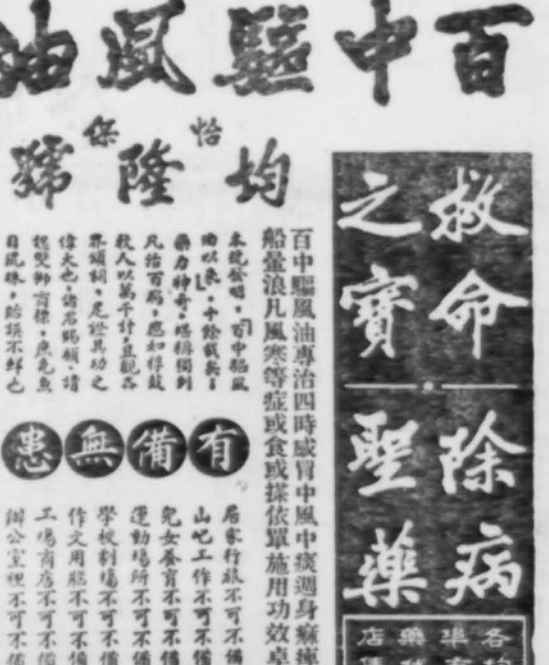 百中驅風油
怡保
均隆號
救命
之寶
除病
聖藥
百中驅風油專治四時感冒中風中痰週身痲
船暈浪凡風寒等症或食或搽依單施用功效卓
本號發明，百中驅風
油以來，十餘載矣！
藥力神奇，堪稱獨到
凡治百病，應如桴鼓
救人以萬千計，且觀各
界頌詞，足證其功之
偉大也，諸君賜顧，請
認雙獅商標，庶免魚
目混珠，貽誤不鮮也
有備無患
居家行旅不可不備
山芭工作不可不備
兒女養育不可不備
運動場所不可不備
學校劇場不可不備
作文用腦不可不備
工場商店不可不備
辦公室裡不可不備
各
藥
店